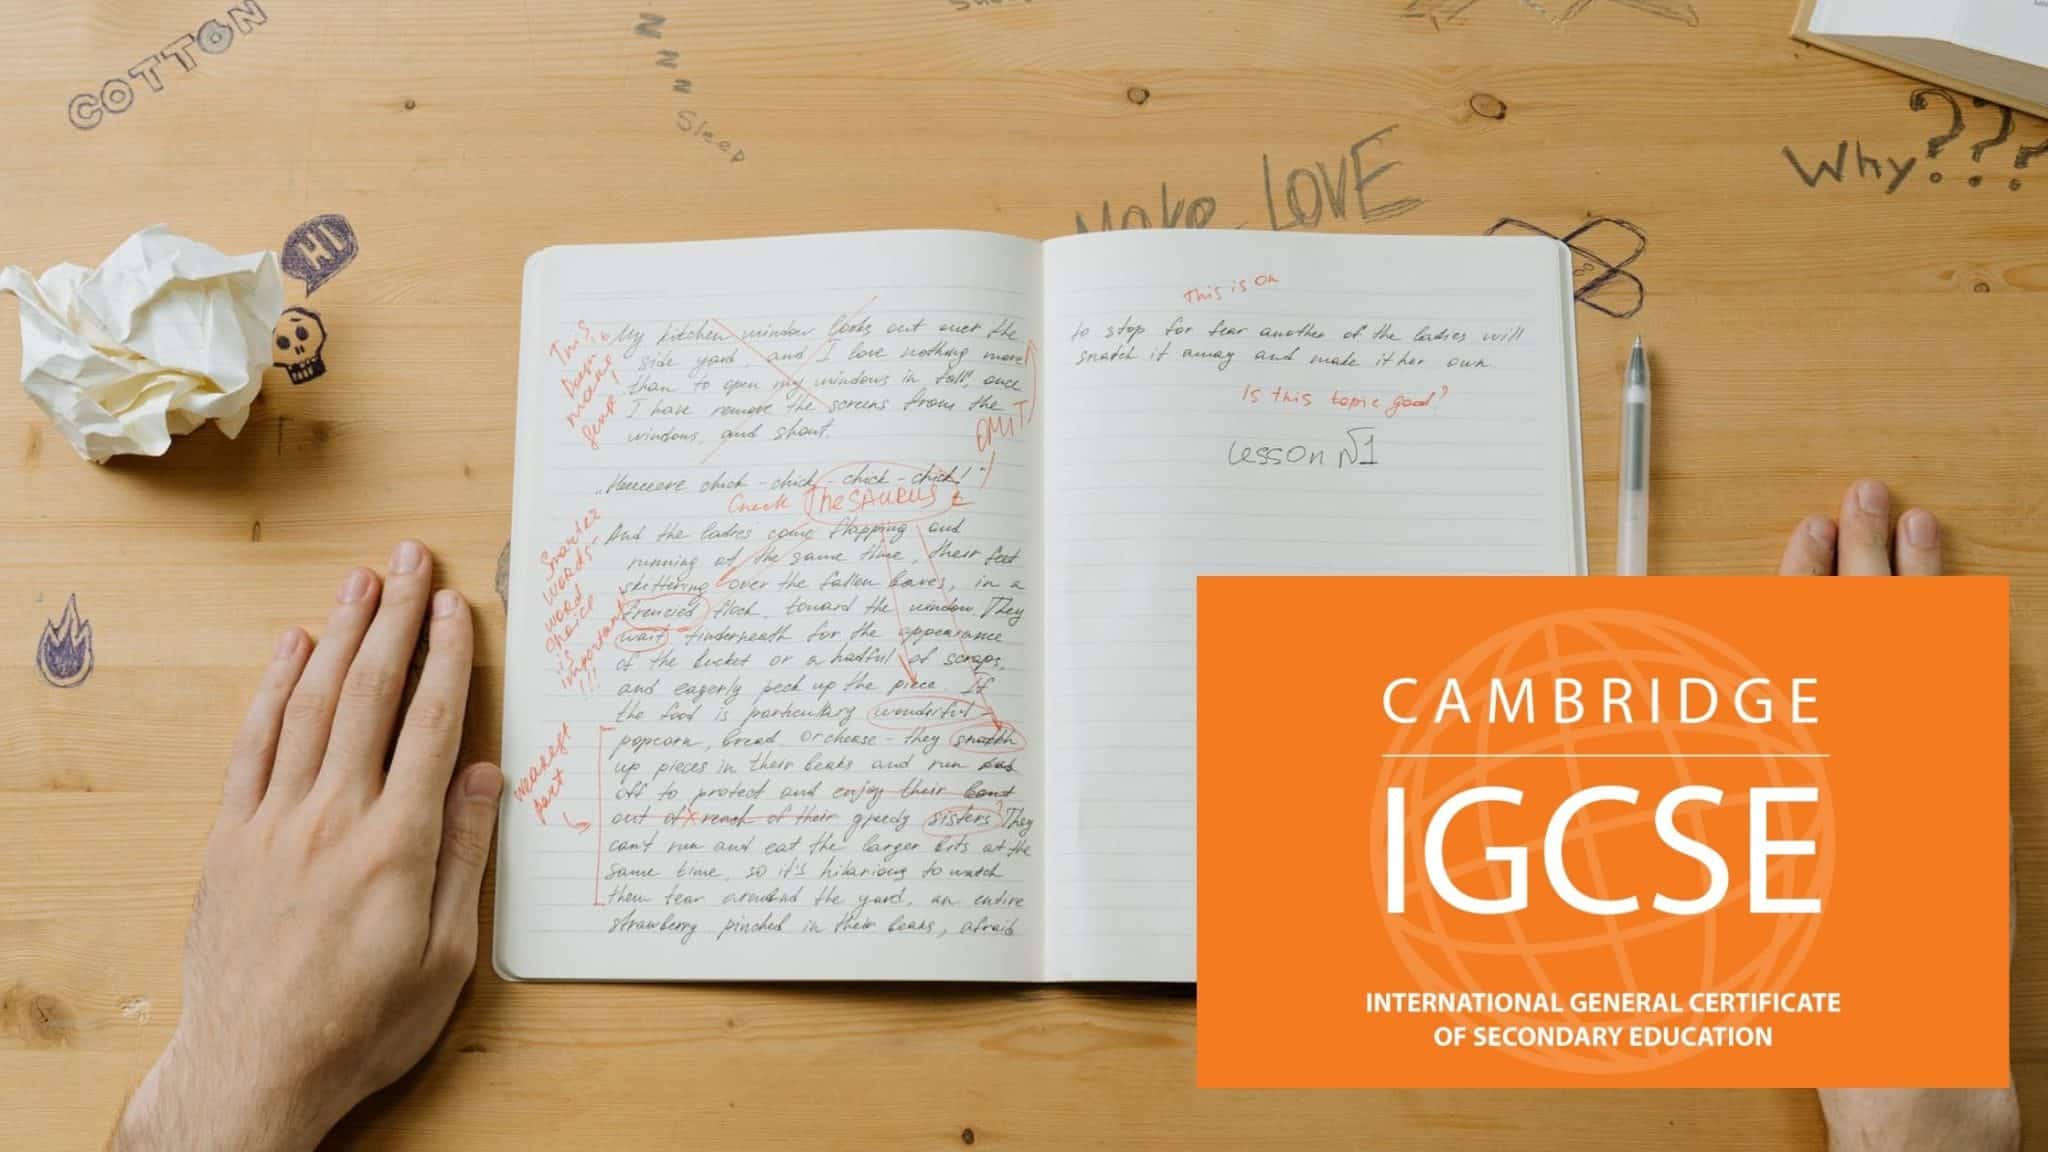 COTTON
Z
Z
Z
Z
Sleep
Make LOVE
Why???
HI
This
Doesn
make
sense!
My kitchen window looks out over the
side yard, and I love nothing more
than to open my windows in fall, once
I have remove the screens from the
windows, and shout.
OMIT
chick - chick - chick - chick!"
Check TheSAURUS
Smarter
words-
word
choice
is
important
!!!
And the ladies come flapping and
running at the same time, their feet
skittering over the fallen leaves, in a
frenzied flock, toward the window. They
wait underneath for the appearance
of the bucket or a hadful of scraps,
and eagerly peck up the piece. If
the food is particulary wonderful -
weakest
part
popcorn, bread or cheese - they snatch
up pieces in their beaks and run
off to protect and enjoy their
out of x reach of their greedy sisters? They
can't run and eat the larger bits at the
same time, so it's hilarious to watch
them tear around the yard, an entire
strawberry pinched in their beaks, afraid
This is ok
to stop for fear another of the ladies will
snatch it away and make it her own.
Is this topic good?
Lesson №1
CAMBRIDGE
IGCSE
INTERNATIONAL GENERAL CERTIFICATE
OF SECONDARY EDUCATION